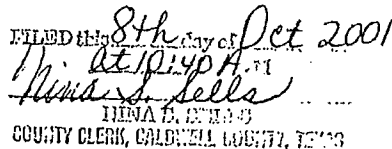 FILED this 8th day of Oct 2001
at 10:40 A.M
Nina S. Sells
NINA S. SELLS
COUNTY CLERK, CALDWELL COUNTY, TEXAS